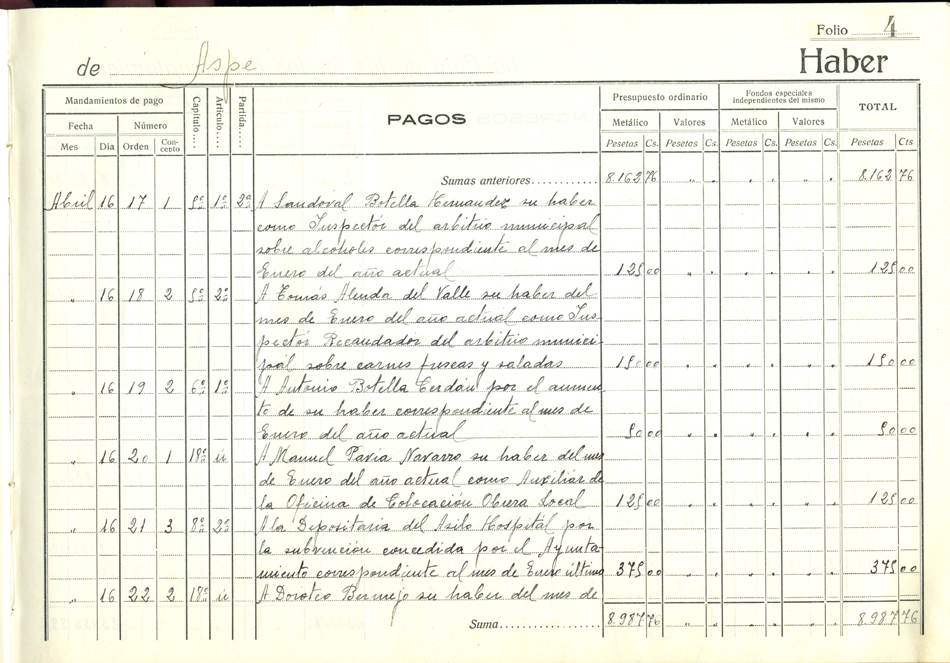 Folio 4
de Aspe Haber
Mandamientos de pago Capítulo.... Artículo..... Partida.... PAGOS Presupuesto ordinario Fondos especiales independientes del mismo TOTAL
Fecha Número Metálico Valores Metálico Valores
Mes Día Orden Concepto Pesetas Cs. Pesetas Cs. Pesetas Cs. Pesetas Cs. Pesetas Cts
Sumas anteriores............ 8.162 76 " " " " " " 8.162 76
Abril 16 17 1 9º 1º 2º A Sandoval Botella Hernandez su haber
como Inspector del arbitrio municipal
sobre alcoholes correspondiente al mes de
Enero del año actual 125 00 " " " " " " 125 00
" 16 18 2 9º 2º A Tomás Alenda del Valle su haber del
mes de Enero del año actual como Ins-
pector Recaudador del arbitrio munici-
pal sobre carnes frescas y saladas 150 00 " " " " " " 150 00
" 16 19 2 6º 1º A Antonio Botella Cerdán por el aumen-
to de su haber correspondiente al mes de
Enero del año actual 50 00 " " " " " " 50 00
" 16 20 1 18º ú A Manuel Pavia Navarro su haber del mes
de Enero del año actual como Auxiliar de
la Oficina de Colocación Obrera Local 125 00 " " " " " " 125 00
" 16 21 3 8º 2º A la Depositaria del Asilo Hospital por
la subvención concedida por el Ayunta-
miento correspondiente al mes de Enero último 375 00 " " " " " " 375 00
" 16 22 2 18º ú A Doroteo Bermejo su haber del mes de
Suma.................. 8.987 76 " " " " " " 8.987 76